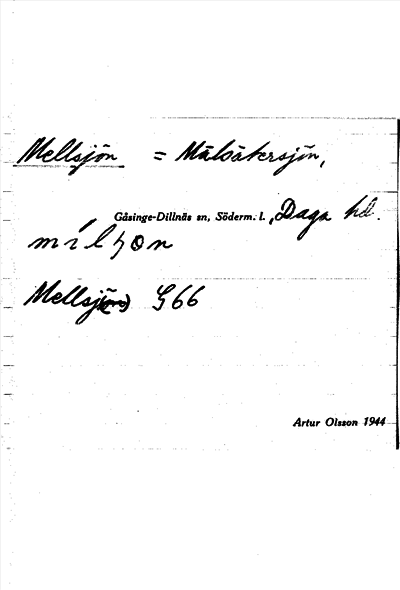 Mellsjön = Mälsåkersjön,
Gåsinge-Dillnäs sn, Söderm. l., Daga hd.
Mellsjön G66
Artur Olsson 1944